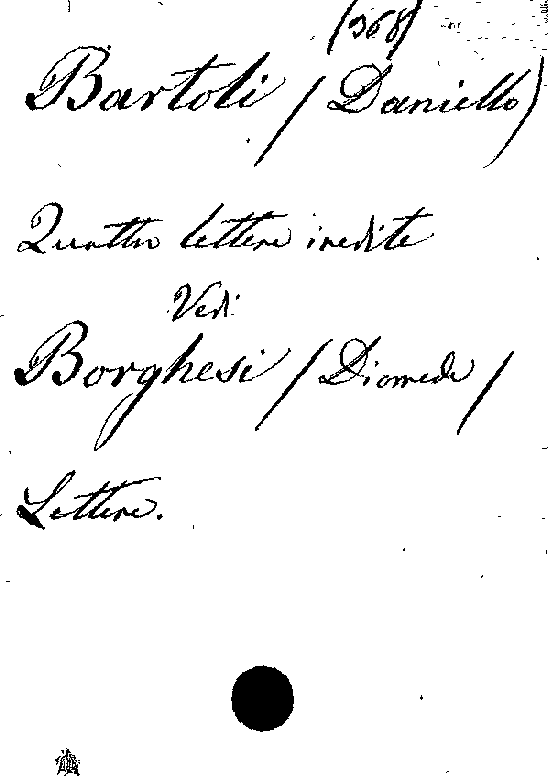 (368)
Bartoli (Daniello)
Quattro lettere inedite
Vedi
Borghesi (Diomede)
Lettere.